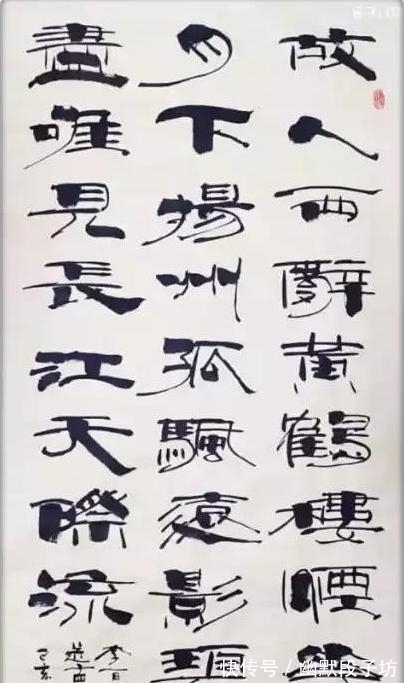 故人西辭黃鶴樓煙
月下揚州孤颿遠影
盡唯見長江天際流
己亥
快传号 / 幽默段子坊